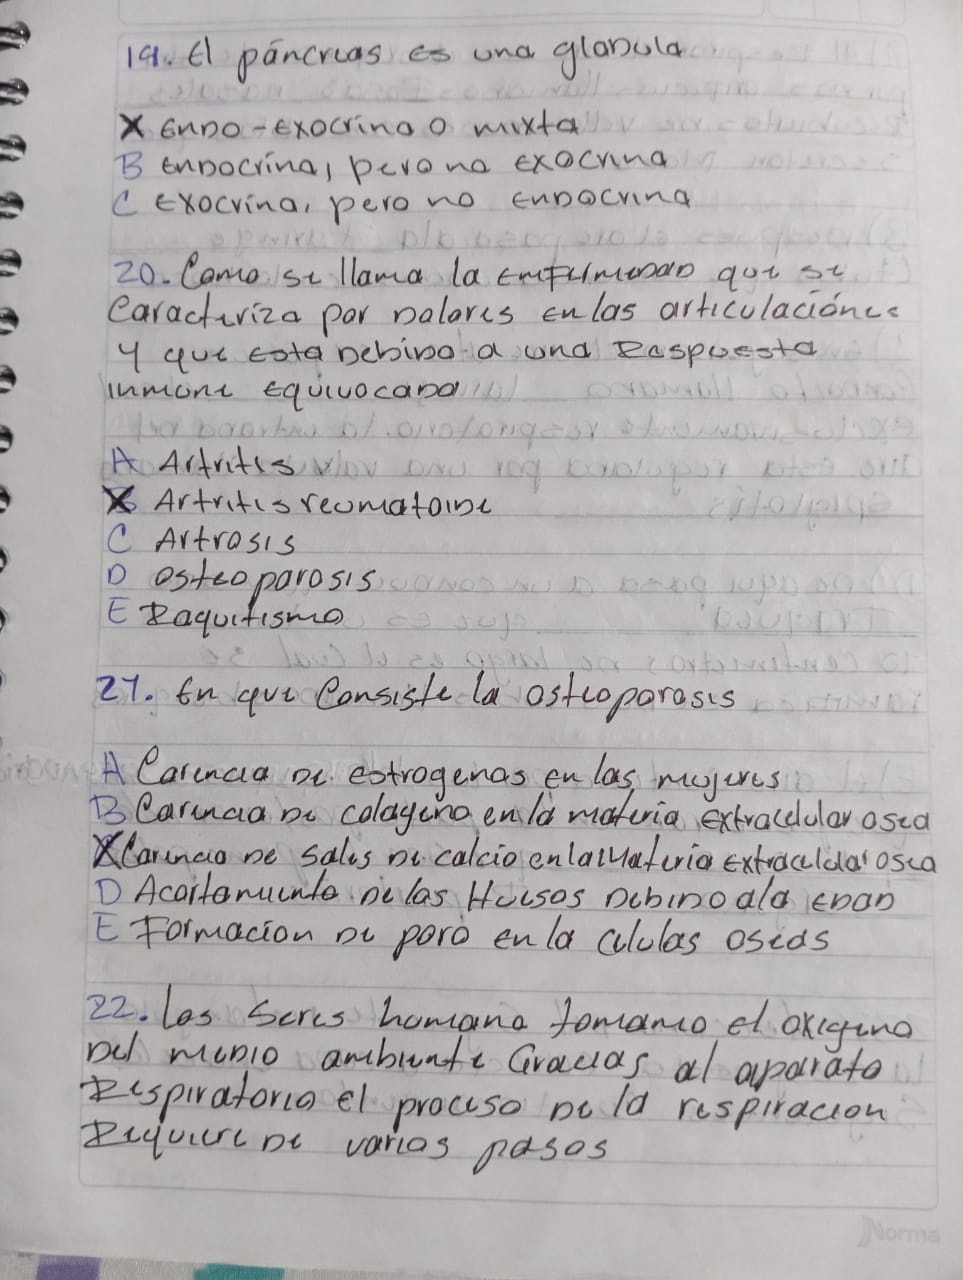 19. El páncreas es una glanDula
X EnDo-Exocrina o mixta
B EnDocrina, pero no Exocrina
C Exocrina, pero no EnDocrina
20. Como se llama la EmfermeDaD que se
Caracteriza por Dolores en las articulaciónes
y que esta DebiDo a una Respuesta
inmone EquivocaDa
A Artritis
X Artritis reumatoiDe
C Artrosis
D Osteoporosis
E Raquitismo
21. En que Consiste la osteoporosis
A Carencia De estrogenos en las mujeres
B Carencia De colageno en la materia Extracelular osea
X Carencia De Sales De calcio en la Materia Extracelular osea
D Acortamiento De las Huesos DebiDo a la EDaD
E Formacion De poro en la Celulas oseas
22. Los Seres humano tomamo el oxigeno
Del meDio ambiente Gracias al aparato
Respiratorio el proceso De la respiracion
Requiere De varios pasos
Norma